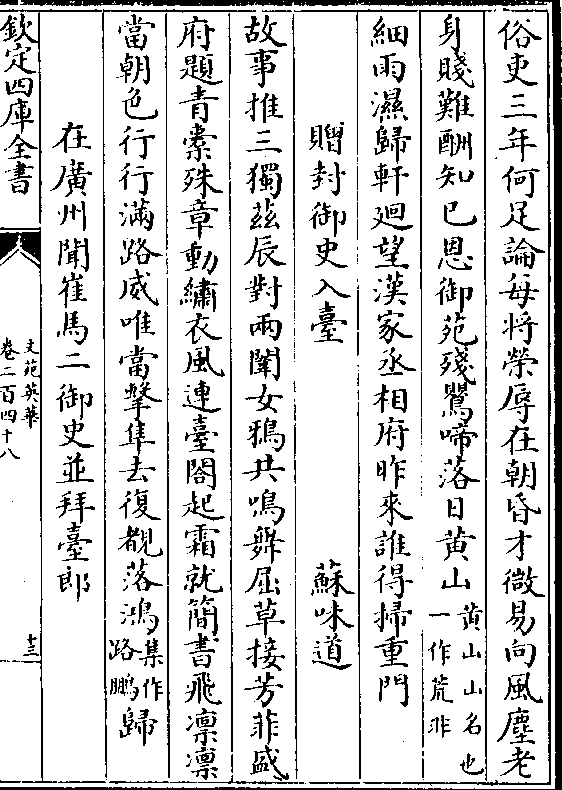 俗吏三年何足論每將榮辱在朝昏才微易向風塵老
身賤難酬知已恩御苑殘鶯啼落日黄山黄山山名也一作荒非
細雨濕歸軒廻望漢家丞相府昨來誰得掃重門
贈封御史入臺 蘇味道
故事推三獨兹辰對兩闈女鴉共鳴舞屈草接芳菲盛
府題青橐殊章動繡衣風連臺閣起霜就簡書飛凛凛
當朝色行行滿路威唯當擊隼去復覩落鴻集作路鵬歸
在廣州聞崔馬二御史並拜臺郎
欽定四庫全書
文苑英華
卷二百四十八
十三